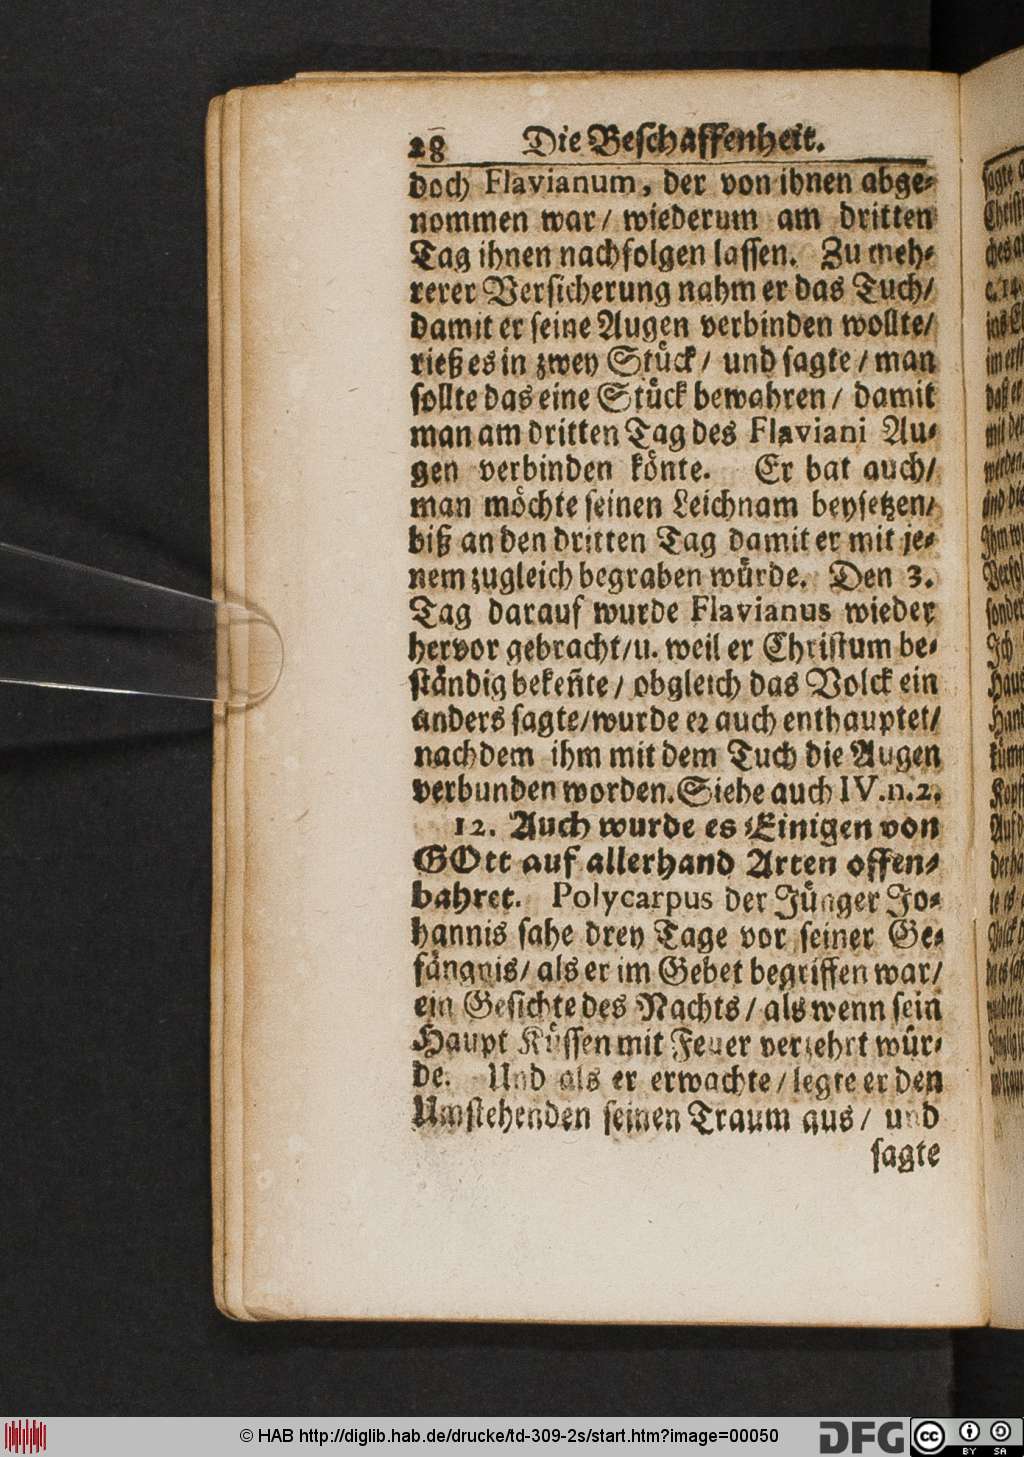 28 Die Beschaffenheit.
doch Flavianum, der von ihnen abge-
nommen war/ wiederum am dritten
Tag ihnen nachfolgen lassen. Zu meh-
rerer Versicherung nahm er das Tuch/
damit er seine Augen verbinden wollte/
rieß es in zwey Stück/ und sagte/ man
sollte das eine Stück bewahren/ damit
man am dritten Tag des Flaviani Au-
gen verbinden könte. Er bat auch/
man möchte seinen Leichnam beysetzen/
biß an den dritten Tag damit er mit je-
nem zugleich begraben würde. Den 3.
Tag darauf wurde Flavianus wieder
hervor gebracht/ u. weil er Christum be-
ständig bekeñte/ obgleich das Volck ein
anders sagte/ wurde er auch enthauptet/
nachdem ihm mit dem Tuch die Augen
verbunden worden. Siehe auch IV. n. 2.
12. Auch wurde es Einigen von
GOtt auf allerhand Arten offen-
bahret. Polycarpus der Jünger Jo-
hannis sahe drey Tage vor seiner Ge-
fängnis/ als er im Gebet begriffen war/
ein Gesichte des Nachts/ als wenn sein
Haupt Küssen mit Feuer verzehrt wür-
de. Und als er erwachte/ legte er den
Umstehenden seinen Traum aus/ und
sagte
© HAB http://diglib.hab.de/drucke/td-309-2s/start.htm?image=00050
DFG
cc BY SA